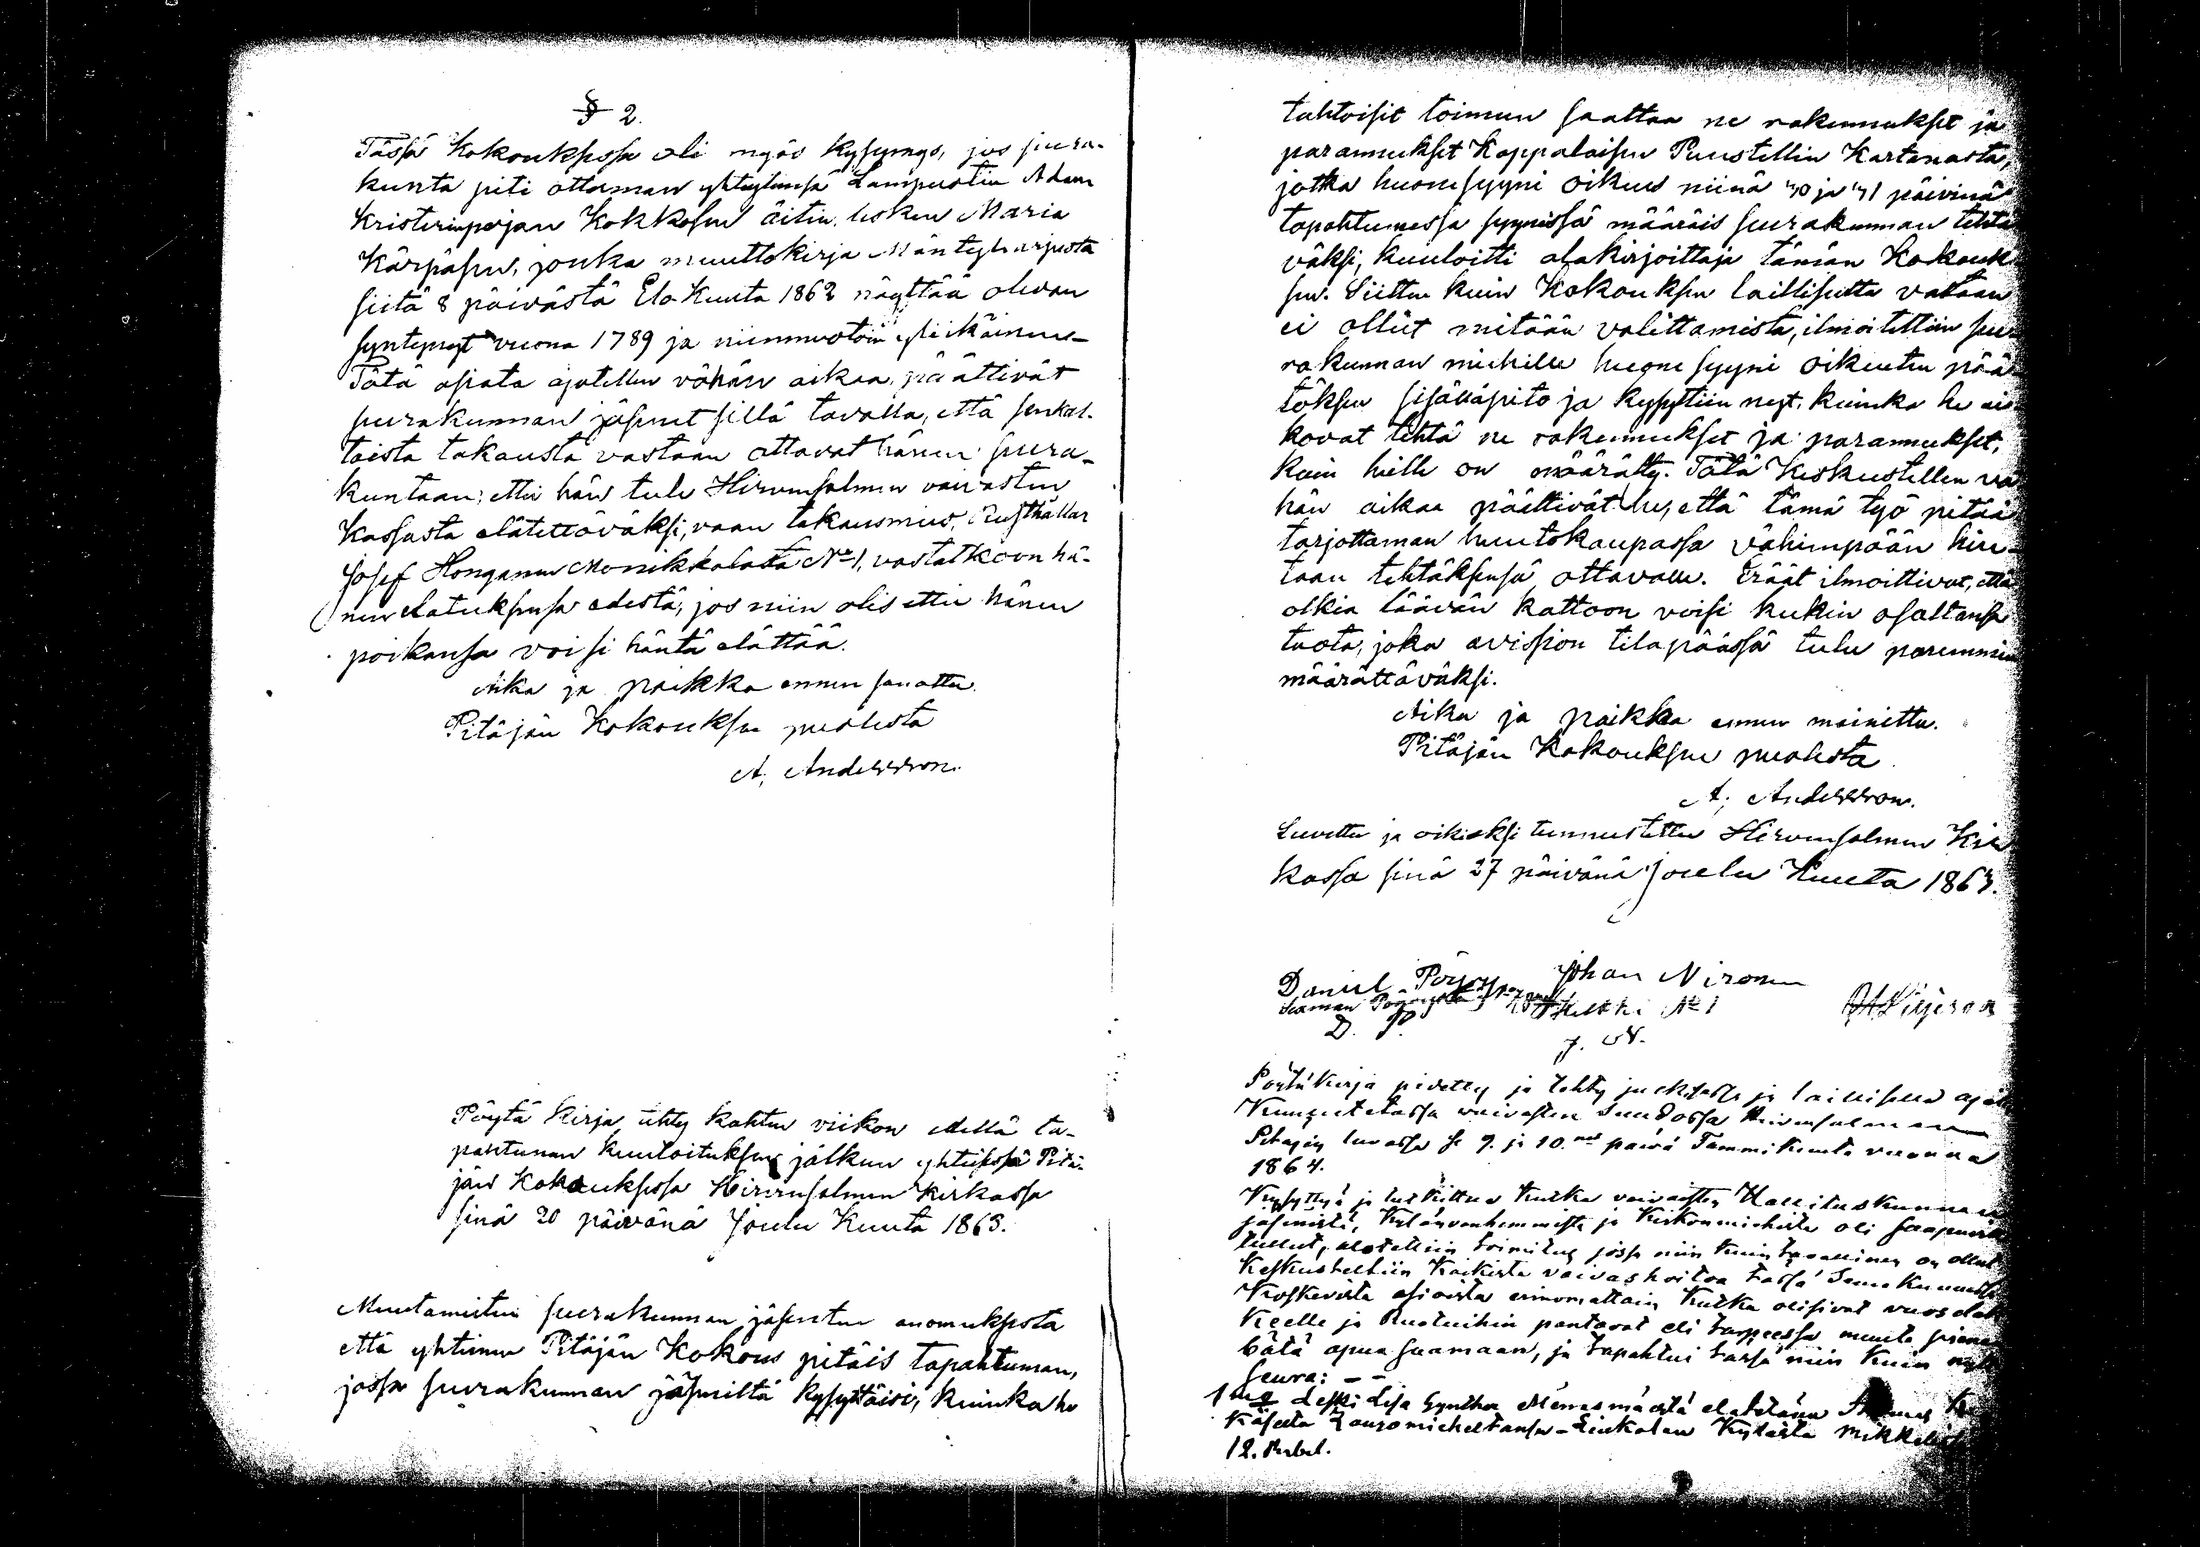 § 2.
Tässä Kokouksessa oli myös kysymys, jos seura-
kunta piti ottaman yhteytensä Lampuotin Adam
Kristerinpojan Kokkosen äitin, lesken Maria
Kärpäsen, jonka muuttokirja Mäntyharjusta
siitä 8 päivästä Elo Kuuta 1862 näyttää olevan
syntynyt vuona 1789 ja niinmuotoin yliikäinen-
Tätä asiata ajatellen vähän aikaa, päättivät
seurakunnan jäsenet sillä tavalla, että senkal-
taista takausta vastaan ottavat hänen seura-
kuntaan; ettei hän tule Hirvensalmen vaivasten
Kassasta elätettäväksi, vaan takausmies, Rusthållar
Josef Honganen Monikkalasta No 1, vastatkoon hä-
nen elatuksensa edestä, jos niin olis ettei hänen
poikansa voisi häntä elättää.
Aika ja paikka ennen sanottu.
Pitäjän Kokouksen puolesta
A. Andersson.
Pöytä kirja tehty kahten viikon edellä ta-
pahtunen kuuloituksen jälkeen yhteisessä Pitä-
jän Kokouksessa Hirvensalmen Kirkossa
sinä 20 päivänä Joulu Kuuta 1863.
Muutamitten seurakunnan jäsenten anomuksesta
että yhteinen Pitäjän Kokous pitäis tapahtuman,
jossa seurakunnan jäseniltä kysyttäisi, kuinka he
tahtoisit toimeen saattaa ne rakennukset ja
parannukset Koppalaisen Puustellin Kartanosta,
jotka huonesyyni oikeus niinä 40 ja 41 päivinä
tapahtunessa syynissä määräis seurakunnan tehtä
väksi, kuuloitti alakirjoittaja tämän Kokouk
sen. Siitten kuin Kokouksen laillisutta vastaan
ei ollut mitään valittamista, ilmoitettiin seu-
rakunnan miehille huone syyni oikeuten pää-
töksen sisälläpito ja kysyttiin nyt, kuinka he ai-
kovat tehtä ne rakennukset ja parannukset,
kuin heille on määrätty. Tätä Keskustellen vä
hän aikaa päättivät he, että tämä työ pitää
tarjottaman huutokaupassa vähimpään hin-
taan tehtäksensä ottavalle. Eräät ilmoittivat, että
olkia läävän kattoon voisi kukin osaltansa
tuota, joka avission tilapäässä tulee paremmin
määrättäväksi.
Aika ja paikka ennen mainittu.
Pitäjän Kokouksen puolesta
A. Andersson.
Luvettu ja oikiaksi tunnustettu Hirvensalmen Kir
kossa sinä 27 päivänä Joulu Kuuta 1863.
Daniel Pöyry Johan Nironen
D. P. No 1
J. N.
Pöytä Kirja pidetty ja tehty julkisessa ja laillisesti ajall
Kuulutetussa vaivasten Suudossa Hirvensalmen
Pitäjän luvassa se 9. ja 10. päivä Tammikuuta vuonna
1864.
Kysyttyä ja tutkittua kutka vaivasten Hallituskunnan
jäsenistä, Kylänvanhemmista ja Kirkonmiehista oli saapuvilla
tullut, alotettiin toimitus jossa niin kuin tavallinen on ollut
Keskusteltiin Kaikista vaivashoitoa tässä Seurakunnassa
Koskevista asioista erinomattain kutka olisivat vuosilal
Keelle ja Ruotuihin pantavat eli tarpeessa muuta pienem
bätä apua saamaan, ja tapahtui tässä niin kuin nyt
seura: - -
1 Leski Lisa
12. Rubel.